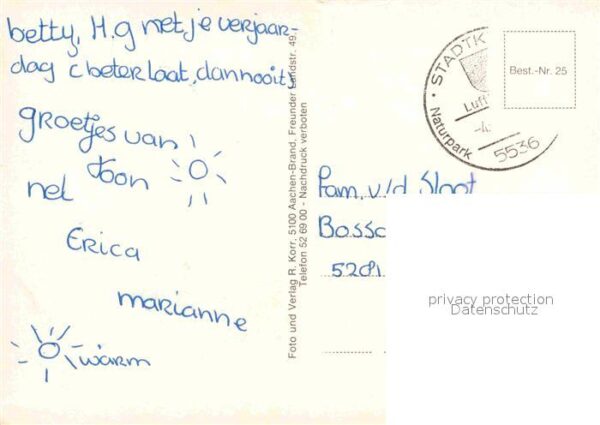 betty, H.g met je verjaar-
dag (beter laat, dan nooit!
groetjes van
Toon
nel
Erica
marianne
warm
Foto und Verlag R. Korr, 5100 Aachen-Brand, Freunder Landstr. 49,
Telefon 52 69 00 - Nachdruck verboten
STADTK
Luft
Naturpark
5536
Best.-Nr. 25
Fam. v/d Sloot
Bossc
5281
privacy protection
Datenschutz